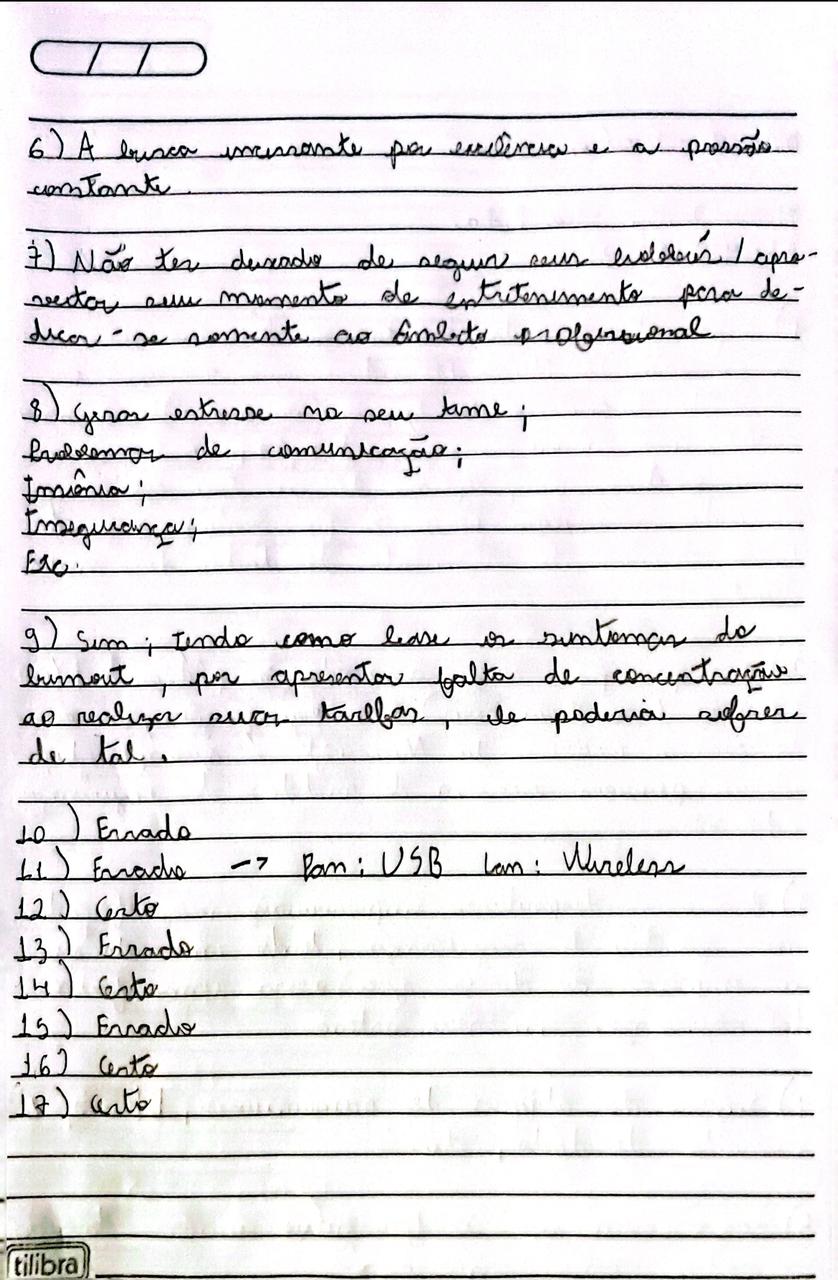 6) A busca incessante por excelência e a pressão
constante.
7) Não ter deixado de seguir seus hobbies / apro-
veitar seu momento de entretenimento para de-
dicar-se somente ao âmbito profissional
8) Gerar estresse no seu time;
Problemas de comunicação;
Insônia;
Insegurança;
Etc.
9) Sim; tendo como base os sintomas do
burnout, por apresentar falta de concentração
ao realizar suas tarefas, ele poderia sofrer
de tal.
10) Errado
11) Errado -> Pan: USB Lan: Wireless
12) Certo
13) Errado
14) Certo
15) Errado
16) Certo
17) Certo
tilibra